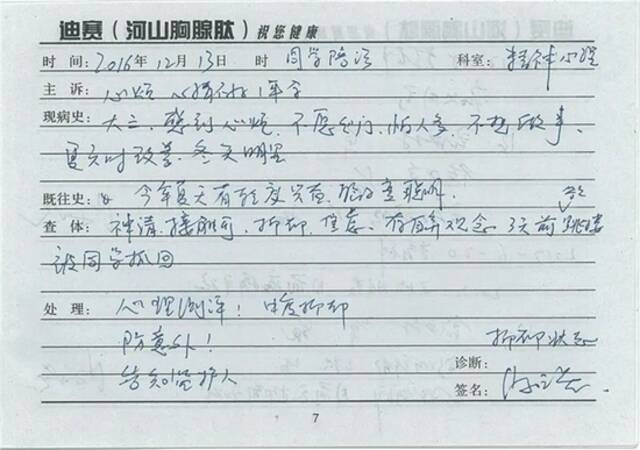 迪赛（河山胸腺肽）祝您健康
时间：2016年12月13日 时 同学陪诊 科室：精神心理
主诉：心烦 心情不好1年余
现病史：大三，感到心烦，不愿出门，怕人多，不想做事，
夏天时改善，冬天明显
既往史： 今年夏天有轻度兴奋，
查体：神清，接触可，抑郁，焦虑，存自弃观念 3天前 跳楼
被同学抓回
处理：心理测评：中度抑郁
防意外！ 抑郁状态
诊断：
告知监护人
签名：
7